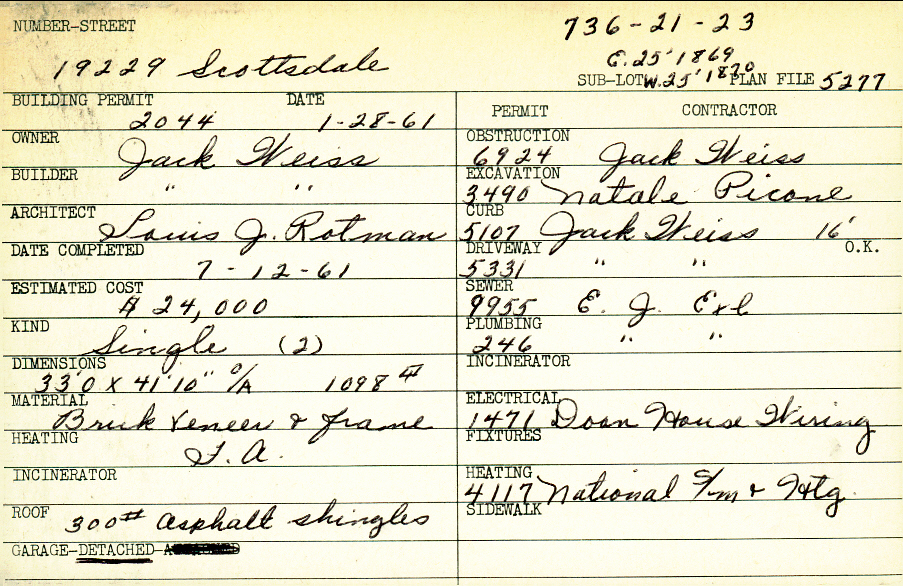 NUMBER-STREET
736-21-23
19229 Scottsdale
E. 25' 1869
SUB-LOT W. 25' 1870 PLAN FILE 5277
BUILDING PERMIT DATE
2044 1-28-61
OWNER
Jack Weiss
BUILDER
" "
ARCHITECT
Louis J. Rotman
DATE COMPLETED
7-12-61
ESTIMATED COST
$ 24,000
KIND
Single (2)
DIMENSIONS
33'0 X 41'10" O/A 1098 #
MATERIAL
Brick Veneer & frame
HEATING
F. A.
INCINERATOR
ROOF
300# asphalt shingles
GARAGE-DETACHED-
PERMIT CONTRACTOR
OBSTRUCTION
6924 Jack Weiss
EXCAVATION
3490 Natale Picone
CURB
5107 Jack Weiss 16'
DRIVEWAY O.K.
5331 " "
SEWER
9955 E. J. Exl
PLUMBING
246 " "
INCINERATOR
ELECTRICAL
1471 Doan House Wiring
FIXTURES
HEATING
4117 National S/m & Htg.
SIDEWALK